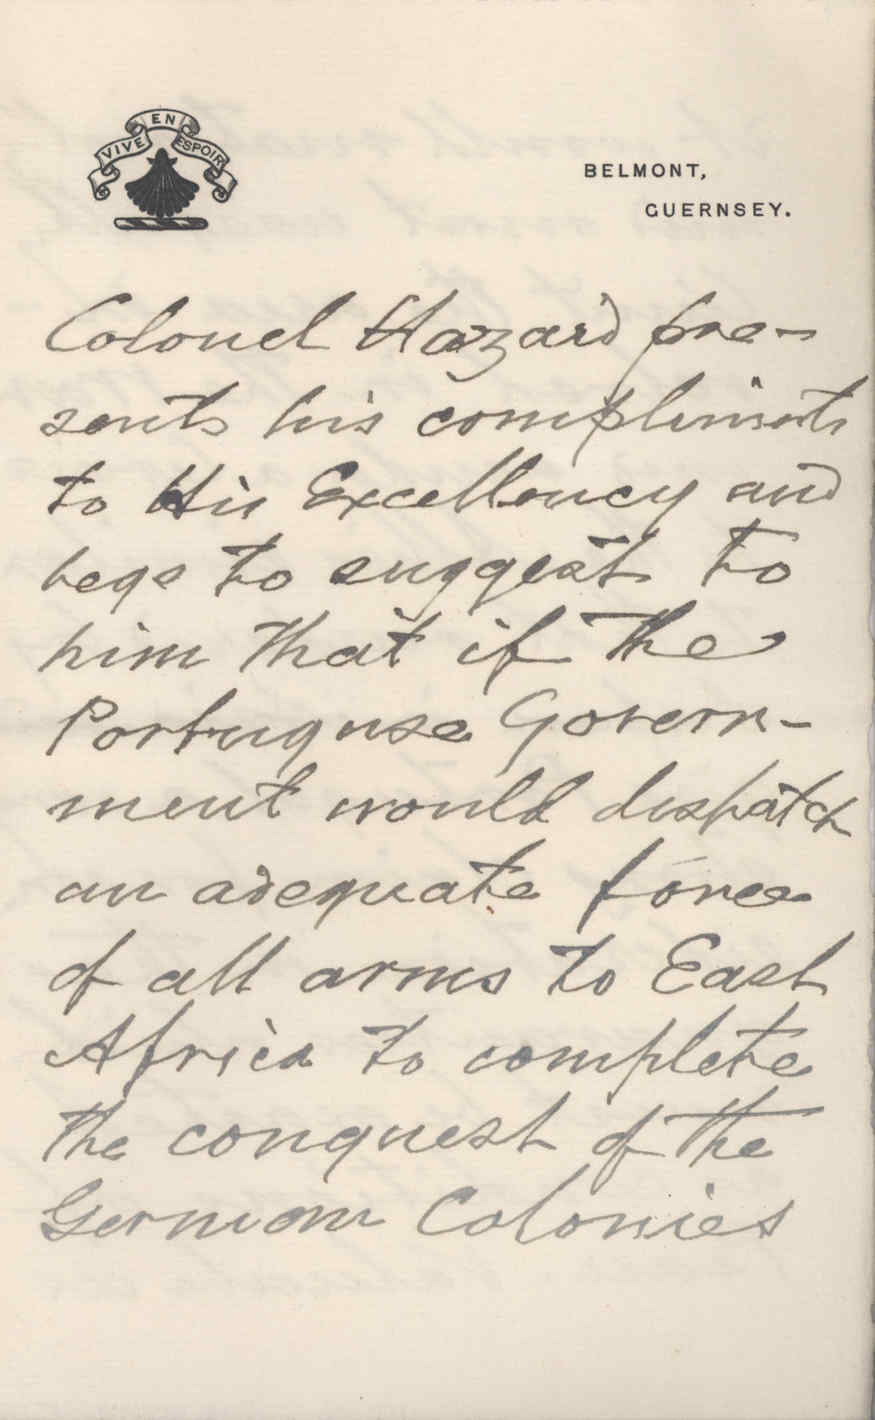 VIVE EN ESPOIR
BELMONT,
GUERNSEY.
Colonel Hazard pre-
sents his compliments
to His Excellency and
begs to suggest to
him that if the
Portuguese Govern-
ment would dispatch
an adequate force
of all arms to East
Africa to complete
the conquest of the
German Colonies